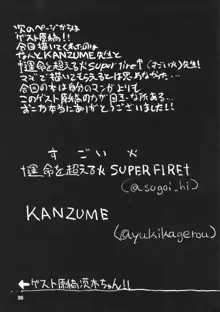 次のページからは
ゲスト原稿!!
今回描いてくれたのは
なんとKANZUME先生と
†運命を超える火super fire†(すごい火)先生!
マジで描いてもらえるとは思わなかった…
今回の本は自分のマンガよりも
このゲスト原稿の方が目玉な所ある…
お二方本当にありがとうございました!!
すごい火
†運命を超える火SUPER FIRE†
(@sugoi_hi)
KANZUME
(@yukikagerou)
←ゲスト原稿茨木ちゃん!!